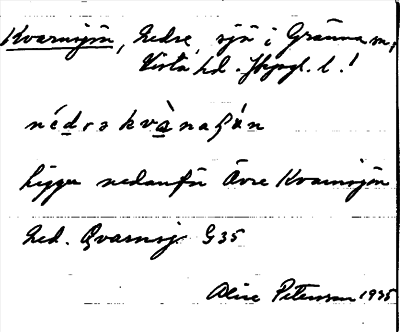 Kvarnsjön, Nedre, sjö i Gränna sn,
Vista hd. Jkpgs l.!
nédrə kvànaʂǿn
ligger nedanför Övre Kvarnsjön
Ned. Qvarnsj. G35
Alice Petersson 1935